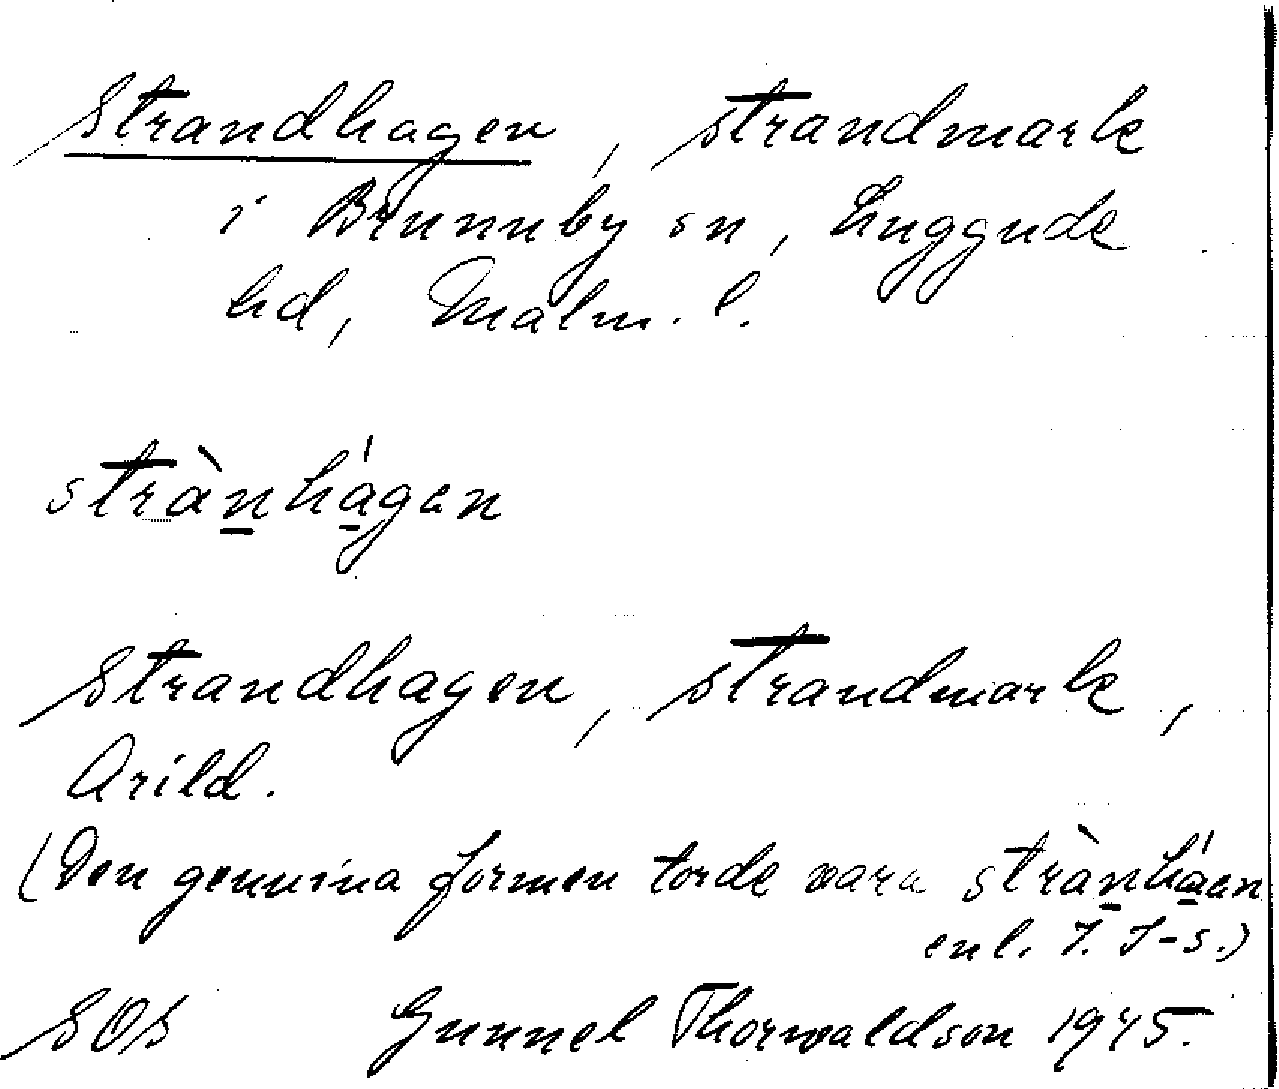 Strandhagen, strandmark
i Brunnby sn, Luggude
hd, Malm. l.
strànhágen
Strandhagen, strandmark,
Arild.
(Den genuina formen torde vara strànháen
enl. I. I-s.)
SOS Gunnel Thorwaldson 1945.